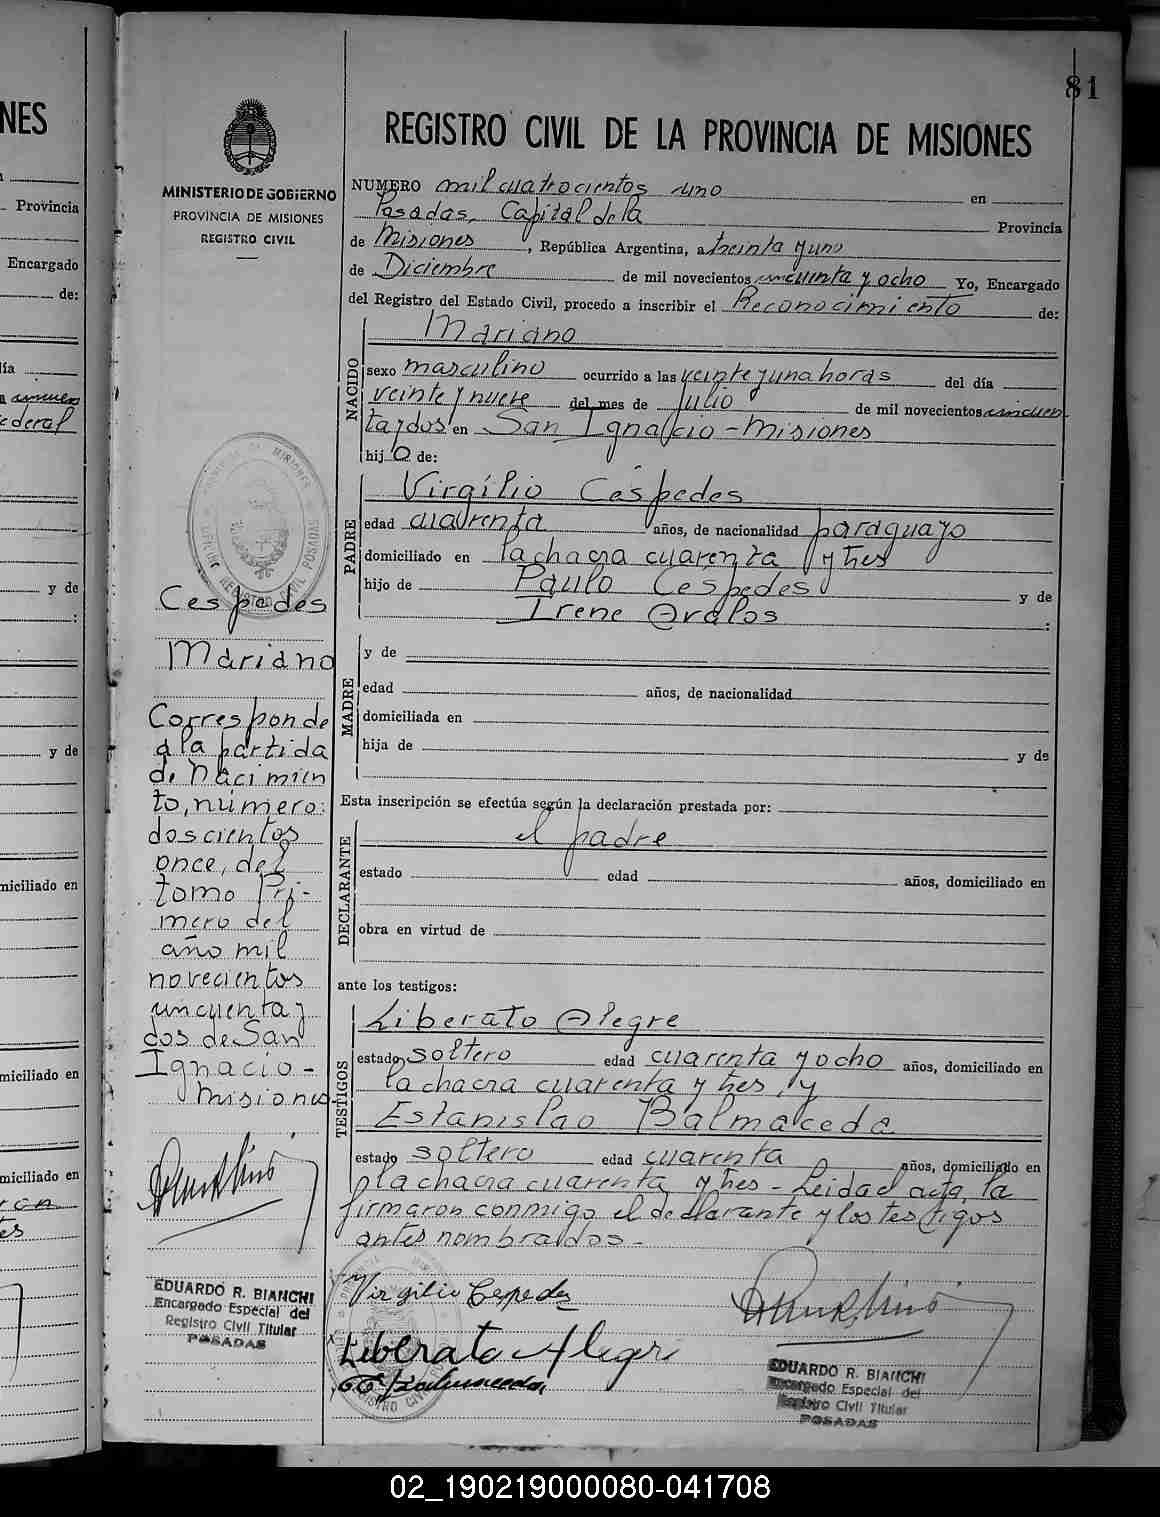 81
NES
Provincia
Encargado
de:
día
ederal
y de
:
y de
miciliado en
miciliado en
miciliado en
MINISTERIO DE GOBIERNO
PROVINCIA DE MISIONES
REGISTRO CIVIL
REGISTRO CIVIL DE LA PROVINCIA DE MISIONES
NUMERO mil cuatrocientos uno en
Posadas, Capital de la Provincia
de Misiones, República Argentina, a treinta y uno
de Diciembre de mil novecientos cincuenta y ocho Yo, Encargado
del Registro del Estado Civil, procedo a inscribir el Reconocimiento de:
NACIDO
Mariano
sexo masculino ocurrido a las veinte y una horas del día
veinte y nueve del mes de Julio de mil novecientos cincuen
ta y dos en San Ignacio - Misiones
hijo de:
PADRE
Virgilio Céspedes
edad cuarenta años, de nacionalidad paraguayo
domiciliado en la chacra cuarenta y tres
hijo de Paulo Céspedes y de
Irene Avalos :
MADRE
y de
edad años, de nacionalidad
domiciliada en
hija de y de
Esta inscripción se efectúa según la declaración prestada por:
DECLARANTE
el padre
estado edad años, domiciliado en
obra en virtud de
ante los testigos:
TESTIGOS
Liberato Alegre
estado soltero edad cuarenta y ocho años, domiciliado en
la chacra cuarenta y tres, y
Estanislao Balmaceda
estado soltero edad cuarenta años, domiciliado en
la chacra cuarenta y tres - Leida el acta, la
firmaron conmigo el declarante y los testigos
antes nombrados -
Virgilio Cespedes
Liberato Alegre
E. Balmaceda
EDUARDO R. BIANCHI
Encargado Especial del
Registro Civil Titular
POSADAS
Cespedes
Mariano
Corresponde
a la partida
de Nacimien
to, número:
doscientos
once, del
tomo Pri-
mero del
año mil
novecientos
cincuenta y
dos de San
Ignacio -
Misiones
EDUARDO R. BIANCHI
Encargado Especial del
Registro Civil Titular
POSADAS
02_190219000080-041708